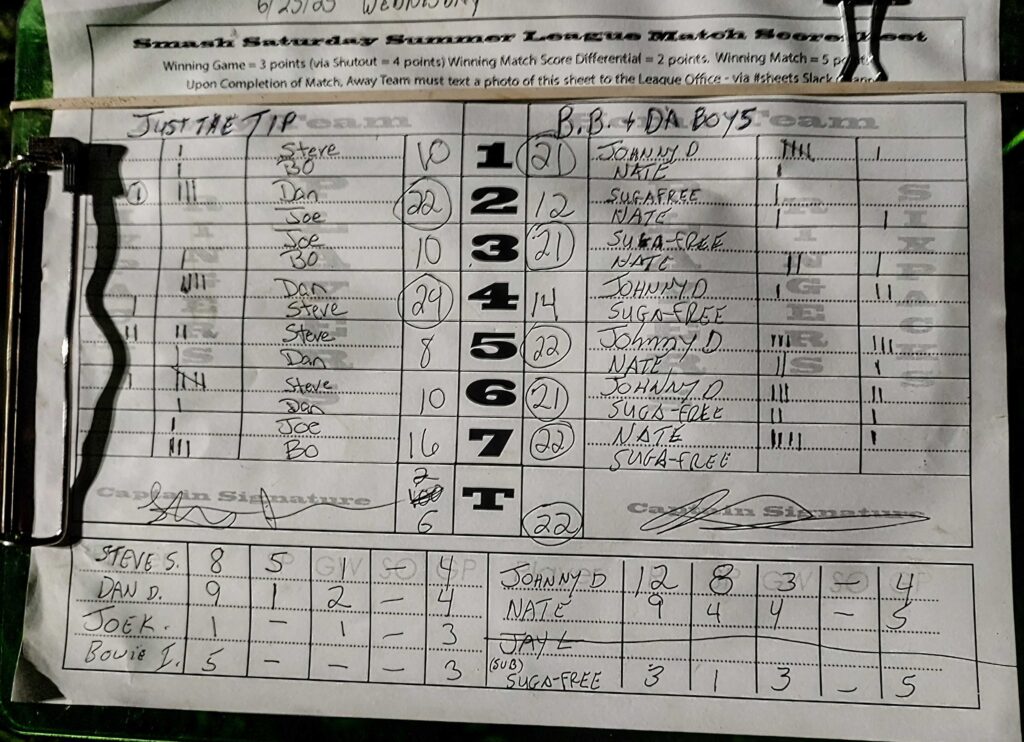 6/25/25 WEDNESDAY
Smash Saturday Summer League Match Score Sheet
Winning Game = 3 points (via Shutout = 4 points) Winning Match Score Differential = 2 points. Winning Match = 5 points
Upon Completion of Match, Away Team must text a photo of this sheet to the League Office - via #sheets Slack Channel
JUST THE TIP Team B.B. & DA BOYS Team
Steve 10 1 21 JOHNNY D
BO NATE
Dan 22 2 12 SUGAFREE
Joe NATE
Joe 10 3 21 SUGA-FREE
BO NATE
Dan 24 4 14 JOHNNY D
Steve SUGA-FREE
Steve 8 5 22 Johnny D
Dan NATE
Steve 10 6 21 JOHNNY D
Dan SUGA-FREE
Joe 16 7 22 NATE
BO SUGA-FREE
2
Captain Signature T 22 Captain Signature
6
STEVE S. 8 5 1 – 4 JOHNNY D 12 8 3 – 4
DAN D. 9 1 2 – 4 NATE 9 4 4 – 5
JOE K. 1 – 1 – 3 JAY L
Bowie I. 5 – – – 3 (SUB) SUGA-FREE 3 1 3 – 5